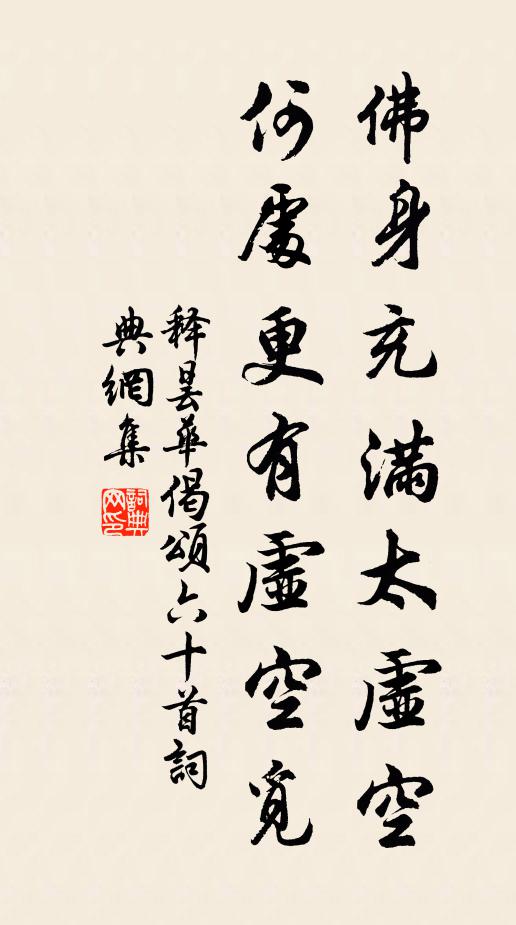 佛身充滿太虛空
何處更有虛空覓
釋曇華偈頌六十首詞
典網集
詞典网印